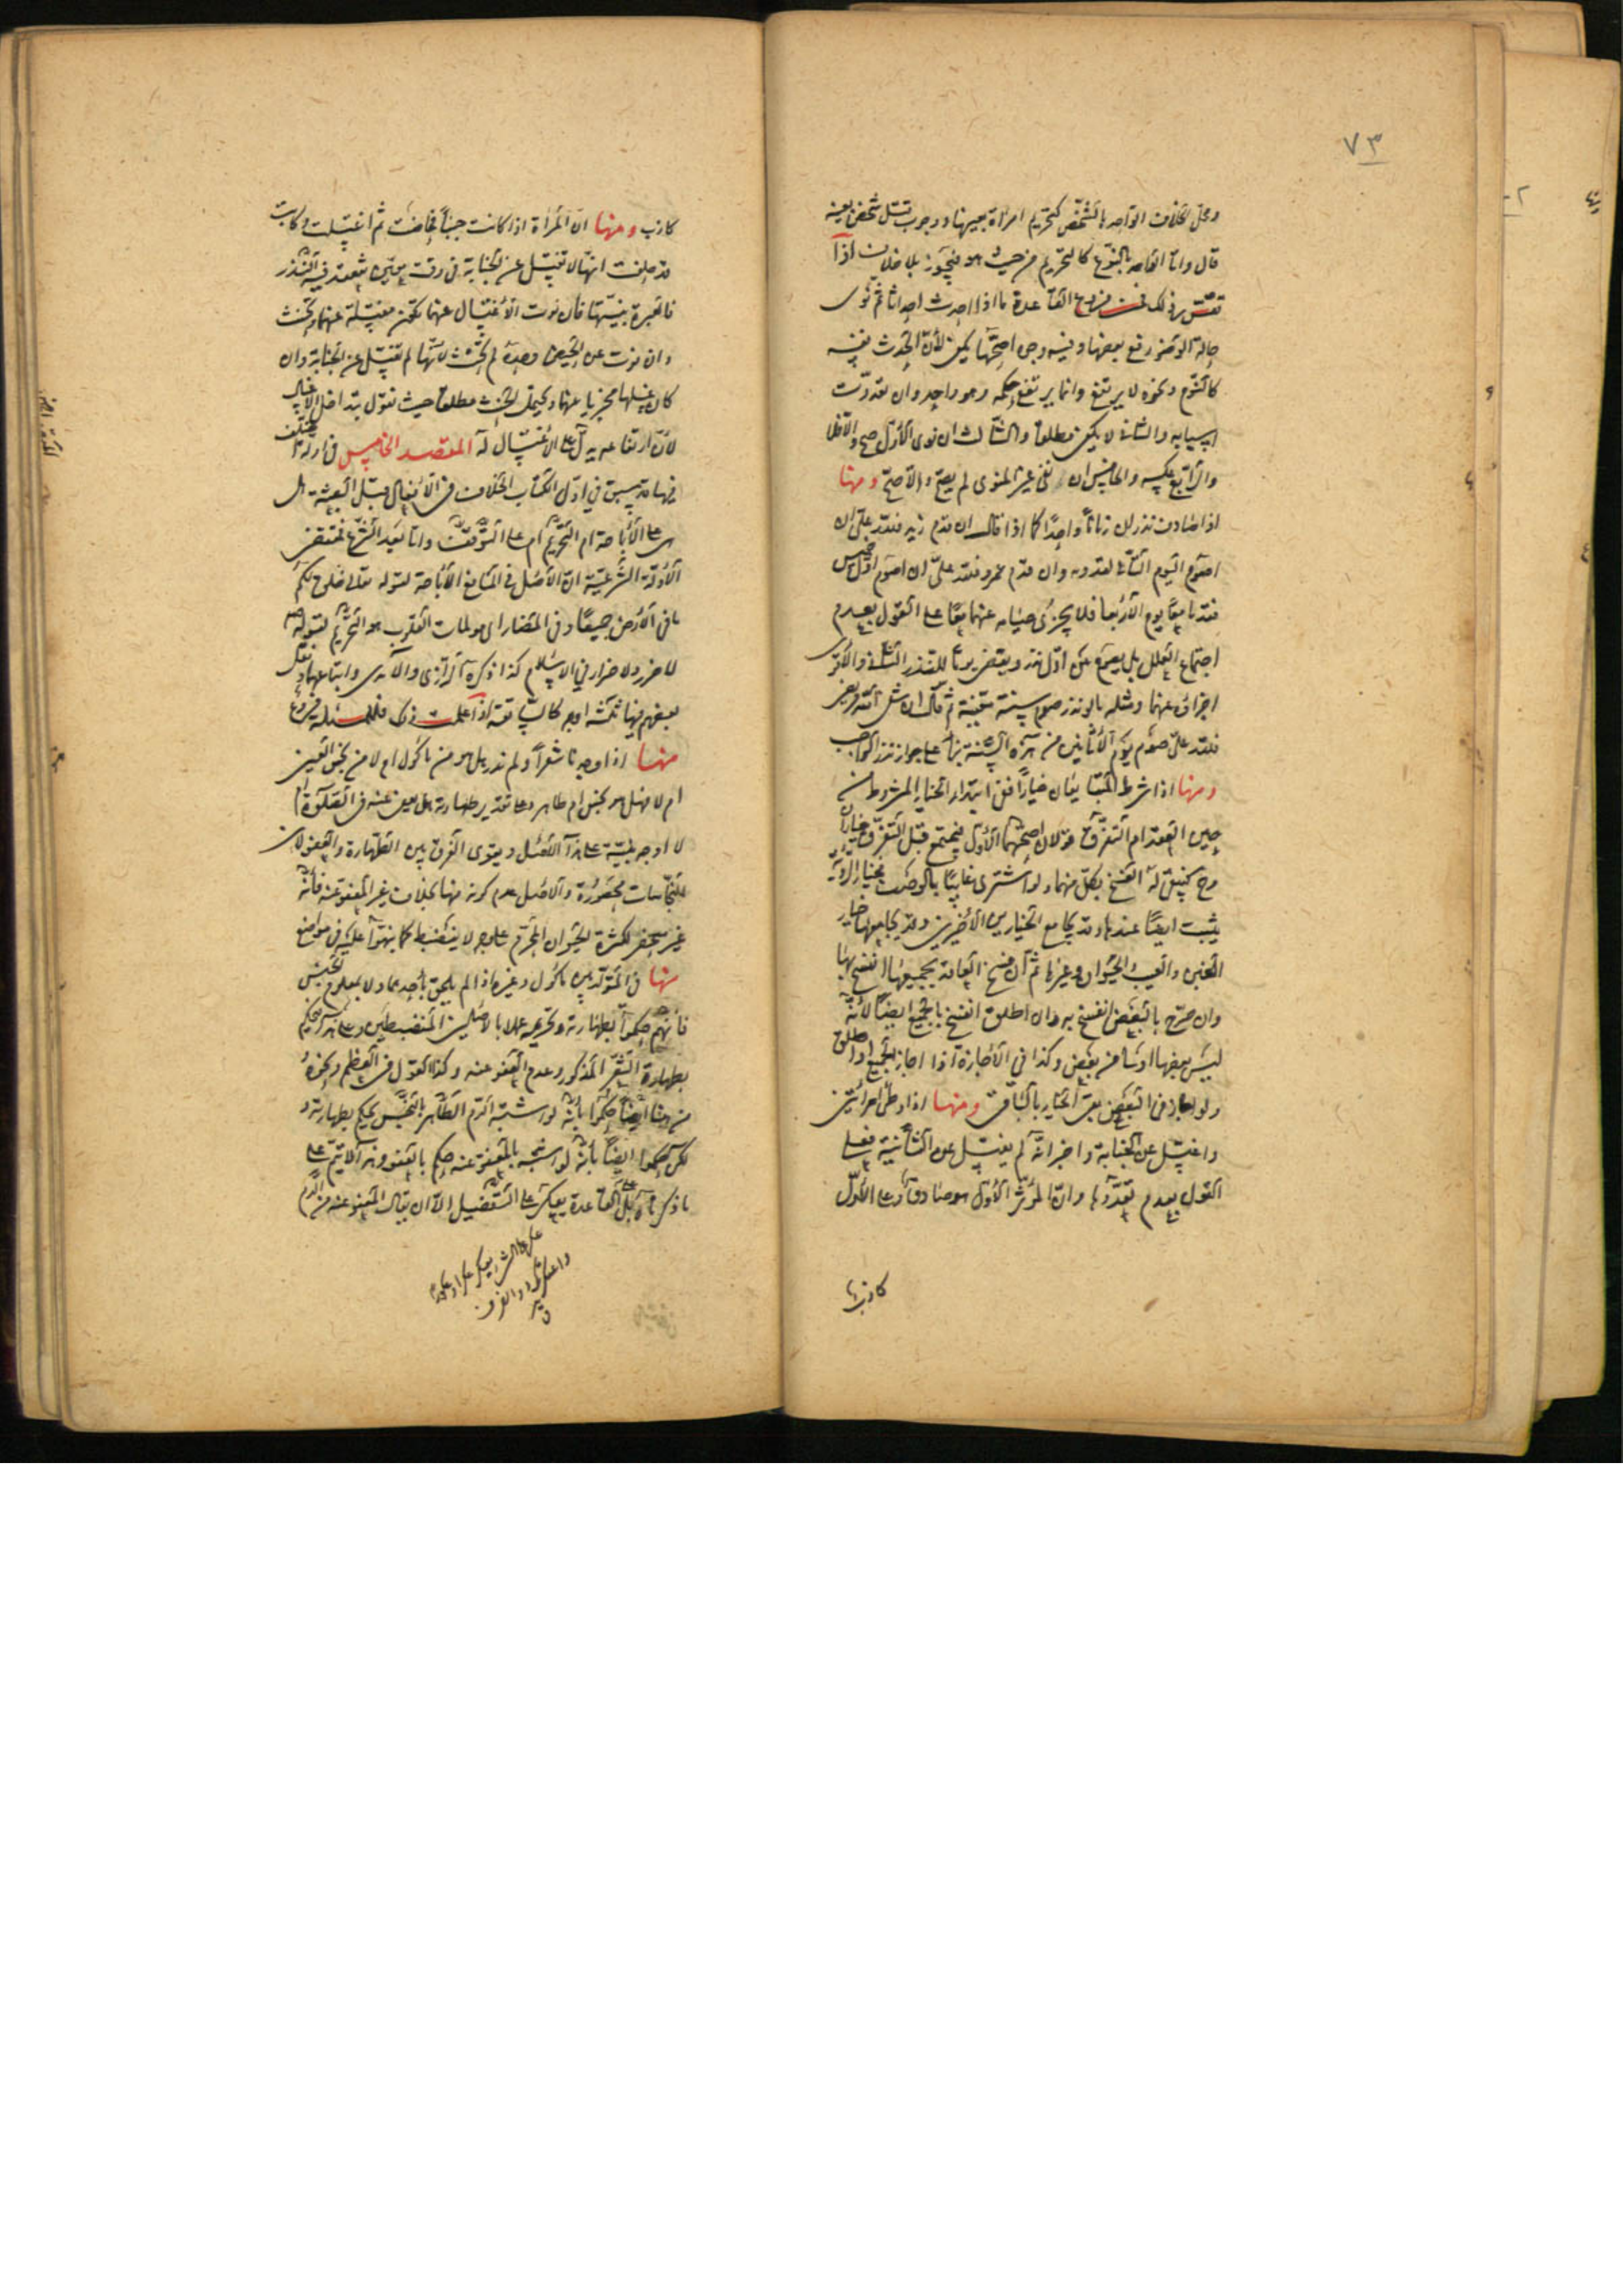 ٧٣
ومحل الخلاف الواحد بالشخص كتحريم امرأة بعينها ووجوب قتل شخص بعينه
قال واما الواحد بالنوع كالتحريم من حيث هو فيجوز بلا خلاف اذا
تقرر ذلك فمن فروع القاعدة ما اذا احدث احداثا ثم نوى
حالة الوضوء رفع بعضها وفيه وجوه اصحها يكفي لأن الحدث نفسه
كالنوم ونحوه لا يرتفع وانما يرتفع حكمه وهو واحد وان تعددت
اسبابه والثاني لا يكفي مطلقا والثالث ان نوى الاول صح والا فلا
والرابع عكسه والخامس ان نفى غير المنوي لم يصح والا صح ومنها
اذا صادف نذران زمانا واحدا كما اذا قال ان قدم زيد فلله علي ان
اصوم اليوم الثاني لقدومه وان قدم عمرو فلله علي ان اصوم اول خميس
فقدما معا يوم الاربعا فلا يجزئ صيامه عنهما معا على القول بعدم
اجتماع العلل بل يصوم عن اول نذر ويقضي يوما للنذر الثاني والاقوى
اجزاؤه عنهما ومثله ما لو نذر صوم سنة معينة ثم قال ان شفى الله مريضي
فلله علي صوم يوم الاثانين من هذه السنة بناء على جواز نذر الواجب
ومنها اذا شرط المتبايعان خيارا ففي ابتداء الخيار المشروط من
حين العقد ام التفرق قولان اصحهما الاول فيجتمع قبل التفرق خياران
وح فيثبت له الفسخ بكل منهما ولو اشترى غايبا بالوصف فخيار الرؤية
يثبت ايضا عندنا وقد يجامع الخيارين الاخيرين وقد يجامعهما خيار
الغبن والعيب والحيوان وغيرها ثم ان فسخ العاقد بجميعها انفسخ بها
وان صرح بالبعض انفسخ به وان اطلق انفسخ بالجميع ايضا لأنه
ليس بعضها اولى من بعض وكذا في الاجازة اذا اجاز الجميع او اطلق
ولو اجاز في البعض بقي الخيار بالباقي ومنها اذا وطئ امرأتين
واغتسل عن الجنابة واخبر انه لم يغتسل عن الثانية فعلى
القول بعدم تعددها وان المؤثر الاول هو صادق وعلى الاول
كاذب
كاذب ومنها ان المرأة اذا كانت جنبا فحاضت ثم اغتسلت وكانت
قد حلفت انها لا تغتسل عن الجنابة في وقت معين ينعقد فيه النذر
فالعبرة بنيتها فان نوت الاغتسال عنهما تكون مغتسلة عنهما وتحنث
وان نوت عن الحيض وحده لم تحنث لانها لم تغتسل عن الجنابة وان
كان غسلها مجزيا عنهما ويحتمل الحنث مطلقا حيث نقول بتداخل الاغسال
لان ارتفاعه يدل على الاغتسال له المقصد الخامس في ادلة اختلف
فيها قد سبق في اول الكتاب الخلاف في الافعال قبل البعثة هل
هي على الاباحة ام التحريم ام على التوقف واما بعد الشرع فمقتضى
الادلة الشرعية ان الاصل في المنافع الاباحة لقوله تعالى خلق لكم
ما في الارض جميعا وفي المضار اي مولمات القلوب هو التحريم لقوله ص
لا ضرر ولا ضرار في الاسلام كذا ذكره الرازي والآمدي واتباعهما ونقل
بعضهم فيها ثلثة اوجه كالسابقة اذا علمت ذلك فللمسئلة فروع
منها اذا وجدنا شعرا ولم ندر هل هو من مأكول ام لا من نجس العين
ام لا فهل هو نجس ام طاهر وعلى تقدير طهارته هل يعفى عنه في الصلوة ام
لا اوجه مبنية على هذا الاصل ويقوى الفرق بين الطهارة والعفو لان
النجاسات محصورة والاصل عدم كونه منها بخلاف غير المعفو عنه فانه
غير منحصر لكثرة الحيوان المحرم على وجه لا ينضبط كما نبهوا عليه في مواضع
منها في المتولد بين مأكول وغيره اذا لم يلحق بأحدهما ولا بمعلوم الجنس
فانهم حكموا بطهارته وتحريمه عملا بالاصلين المنضبطين وعلى هذا فيحكم
بطهارة الشعر المذكور وعدم العفو عنه وكذا القول في العظم ونحوه
من هنا ايضا حكموا بأنه لو اشتبه الدم الطاهر بالنجس يحكم بطهارته و
لكن حكموا ايضا بأنه لو اشتبه بالمعفو عنه حكم بالعفو وهذا لا يتم على
ما ذكرناه بل القاعدة يعكر على التفضيل الا ان يقال المعفو عنه من الدم